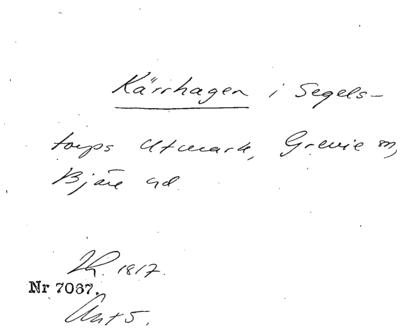 Kärrhagen i Segels-
torps Utmark, Grevie sn,
Bjäre hd
1817.
Nr 7067.